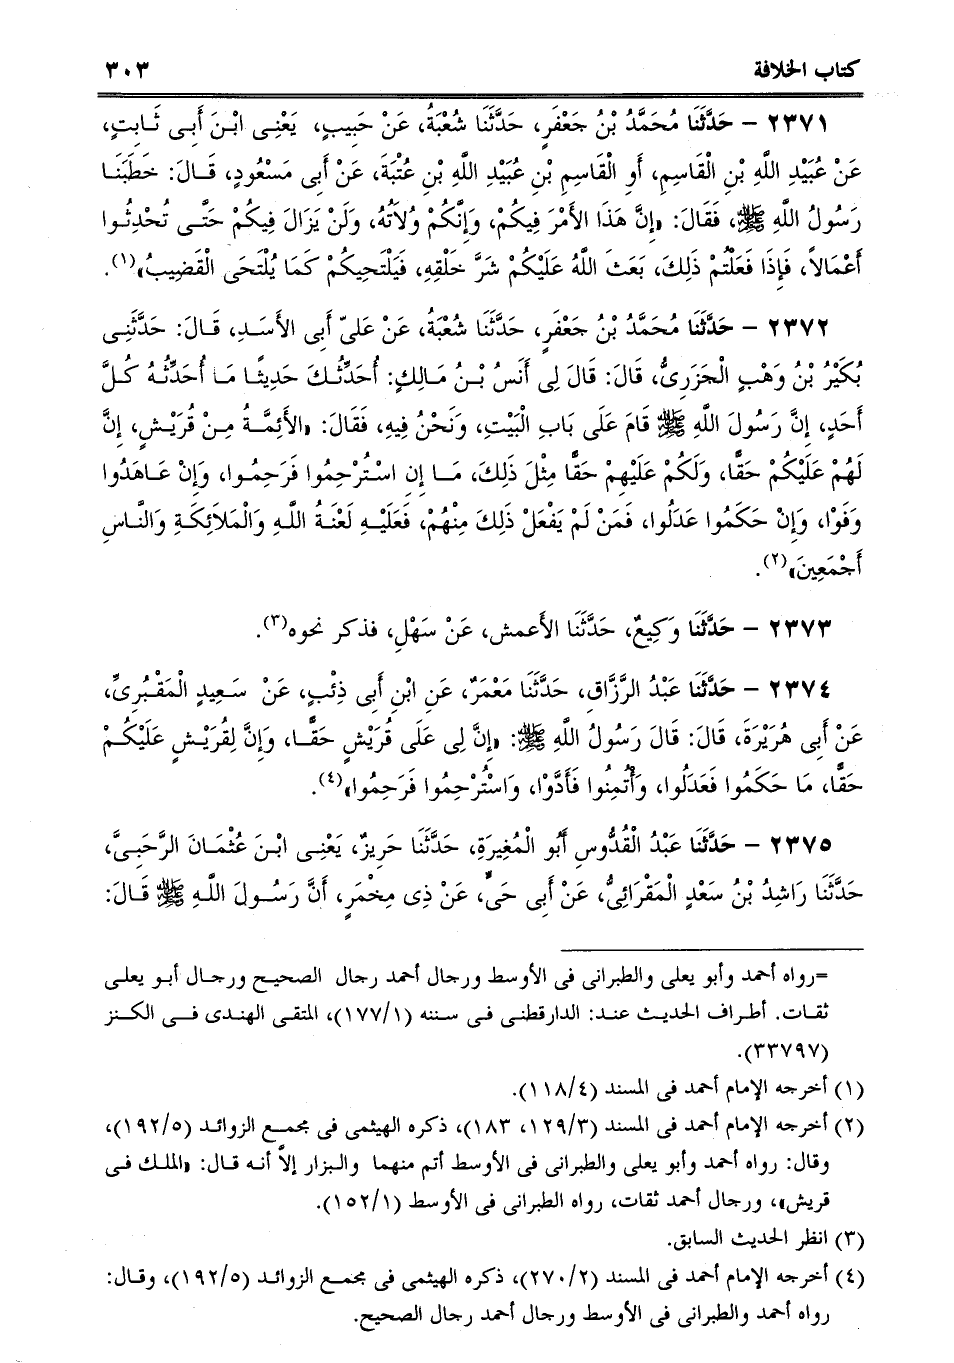 كتاب الخلافة ٣٠٣
٢٣٧١ – حَدَّثَنَا مُحَمَّدُ بْنُ جَعْفَرٍ، حَدَّثَنَا شُعْبَةُ، عَنْ حَبِيبٍ، يَعْنِى ابْنَ أَبِى ثَابِتٍ،
عَنْ عُبَيْدِ اللَّهِ بْنِ الْقَاسِمِ، أَوِ الْقَاسِمِ بْنِ عُبَيْدِ اللَّهِ بْنِ عُتْبَةَ، عَنْ أَبِى مَسْعُودٍ، قَالَ: خَطَبَنَا
رَسُولُ اللَّهِ ﷺ، فَقَالَ: «إِنَّ هَذَا الأَمْرَ فِيكُمْ، وَإِنَّكُمْ وُلاَتُهُ، وَلَنْ يَزَالَ فِيكُمْ حَتَّى تُحْدِثُوا
أَعْمَالاً، فَإِذَا فَعَلْتُمْ ذَلِكَ، بَعَثَ اللَّهُ عَلَيْكُمْ شَرَّ خَلْقِهِ، فَيَلْتَحِيكُمْ كَمَا يُلْتَحَى الْقَضِيبُ»(١).
٢٣٧٢ – حَدَّثَنَا مُحَمَّدُ بْنُ جَعْفَرٍ، حَدَّثَنَا شُعْبَةُ، عَنْ عَلىّ أَبِى الأَسَدِ، قَالَ: حَدَّثَنِى
بُكَيْرُ بْنُ وَهْبٍ الْجَزَرِىُّ، قَالَ: قَالَ لِى أَنَسُ بْنُ مَالِكٍ: أُحَدِّثُكَ حَدِيثًا مَا أُحَدِّثُهُ كُلَّ
أَحَدٍ، إِنَّ رَسُولَ اللَّهِ ﷺ قَامَ عَلَى بَابِ الْبَيْتِ، وَنَحْنُ فِيهِ، فَقَالَ: «الأَئِمَّةُ مِنْ قُرَيْشٍ، إِنَّ
لَهُمْ عَلَيْكُمْ حَقًّا، وَلَكُمْ عَلَيْهِمْ حَقًّا مِثْلَ ذَلِكَ، مَا إِنِ اسْتُرْحِمُوا فَرَحِمُوا، وَإِنْ عَاهَدُوا
وَفَوْا، وَإِنْ حَكَمُوا عَدَلُوا، فَمَنْ لَمْ يَفْعَلْ ذَلِكَ مِنْهُمْ، فَعَلَيْهِ لَعْنَةُ اللَّهِ وَالْمَلاَئِكَةِ وَالنَّاسِ
أَجْمَعِينَ»(٢).
٢٣٧٣ – حَدَّثَنَا وَكِيعٌ، حَدَّثَنَا الأَعمش، عَنْ سَهْلٍ، فذكر نحوه(٣).
٢٣٧٤ – حَدَّثَنَا عَبْدُ الرَّزَّاقِ، حَدَّثَنَا مَعْمَرٌ، عَنِ ابْنِ أَبِى ذِئْبٍ، عَنْ سَعِيدٍ الْمَقْبُرِىِّ،
عَنْ أَبِى هُرَيْرَةَ، قَالَ: قَالَ رَسُولُ اللَّهِ ﷺ: «إِنَّ لِى عَلَى قُرَيْشٍ حَقًّا، وَإِنَّ لِقُرَيْشٍ عَلَيْكُمْ
حَقًّا، مَا حَكَمُوا فَعَدَلُوا، وَأْتُمِنُوا فَأَدَّوْا، وَاسْتُرْحِمُوا فَرَحِمُوا»(٤).
٢٣٧٥ – حَدَّثَنَا عَبْدُ الْقُدُّوسِ أَبُو الْمُغِيرَةِ، حَدَّثَنَا حَرِيزٌ، يَعْنِى ابْنَ عُثْمَانَ الرَّحَبِىَّ،
حَدَّثَنَا رَاشِدُ بْنُ سَعْدٍ الْمَقْرَائِىُّ، عَنْ أَبِى حَىٍّ، عَنْ ذِى مِخْمَرٍ، أَنَّ رَسُولَ اللَّهِ ﷺ قَالَ:
=رواه أحمد وأبو يعلى والطبرانى فى الأوسط ورجال أحمد رجال الصحيح ورجال أبو يعلى
ثقات. أطراف الحديث عند: الدارقطنى فى سننه (١٧٧/١)، المتقى الهندى فى الكنز
(٣٣٧٩٧).
(١) أخرجه الإمام أحمد فى المسند (١١٨/٤).
(٢) أخرجه الإمام أحمد فى المسند (١٢٩/٣، ١٨٣)، ذكره الهيثمى فى مجمع الزوائد (١٩٢/٥)،
وقال: رواه أحمد وأبو يعلى والطبرانى فى الأوسط أتم منهما والبزار إلاَّ أنه قال: «الملك فى
قريش»، ورجال أحمد ثقات، رواه الطبرانى فى الأوسط (١٥٢/١).
(٣) انظر الحديث السابق.
(٤) أخرجه الإمام أحمد فى المسند (٢٧٠/٢)، ذكره الهيثمى فى مجمع الزوائد (١٩٢/٥)، وقال:
رواه أحمد والطبرانى فى الأوسط ورجال أحمد رجال الصحيح.